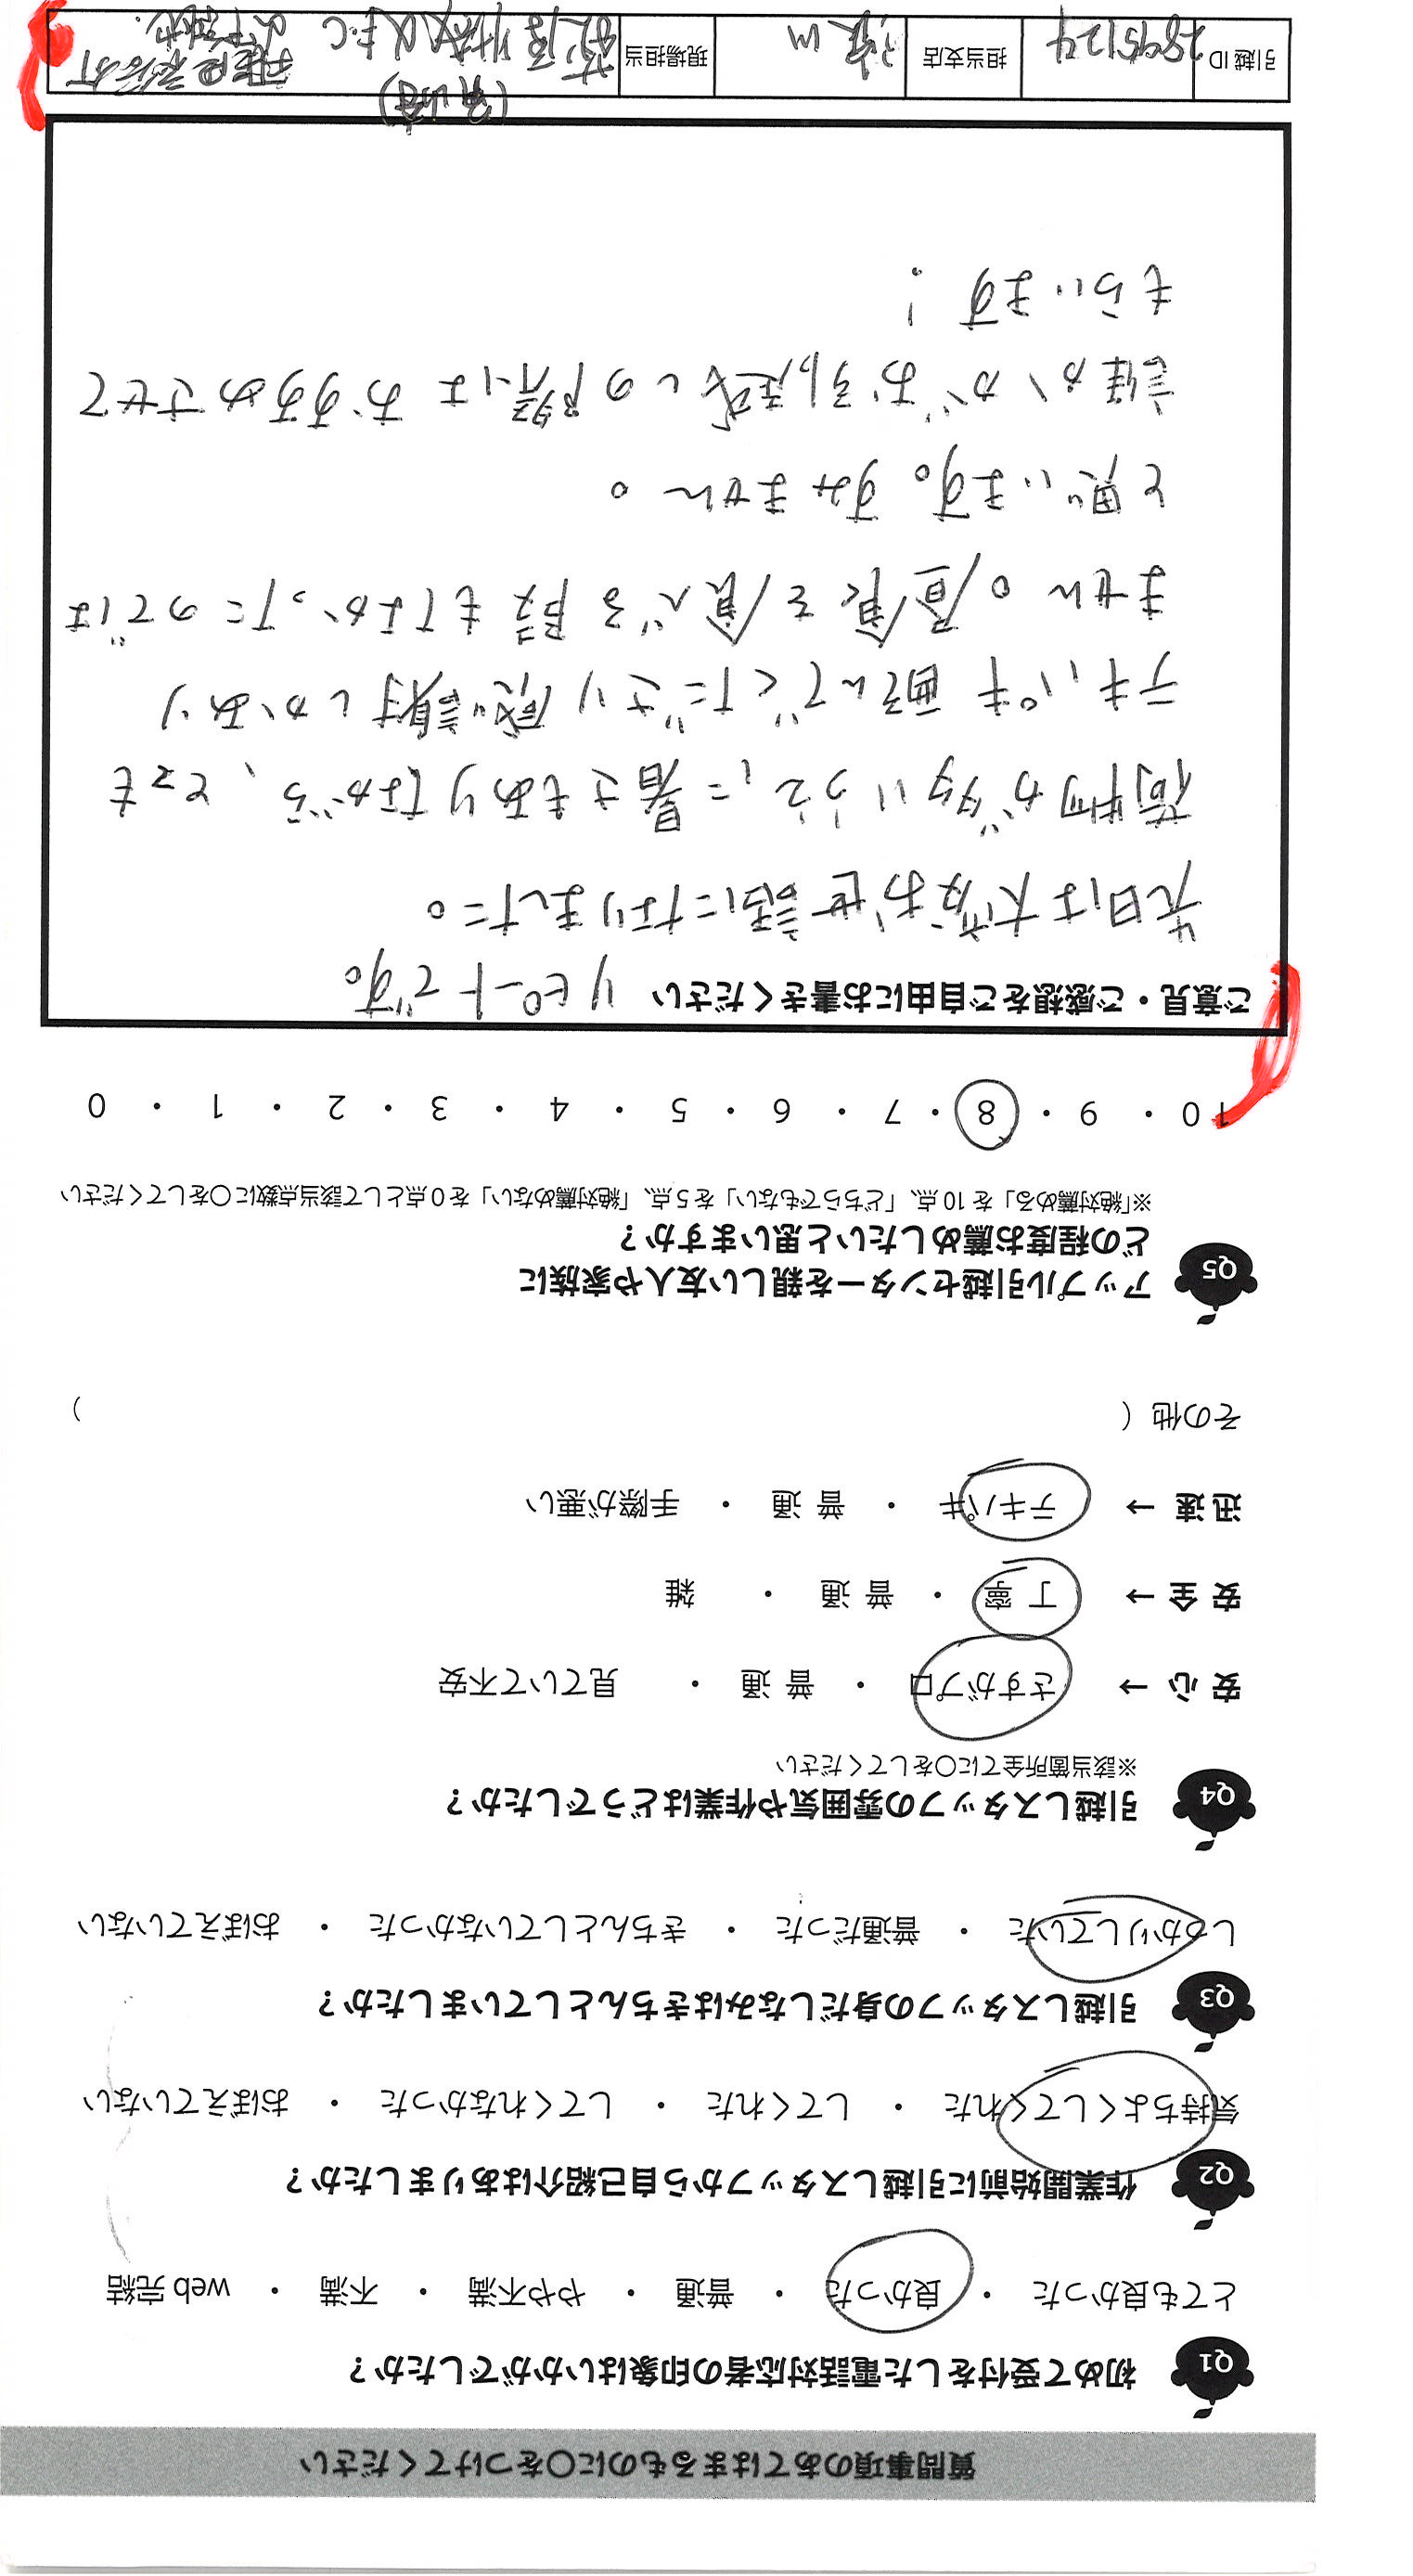 質問事項のあてはまるものに○をつけてください
Q1 初めて受付をした電話対応者の印象はいかがでしたか？
とても良かった ・ 良かった ・ 普通 ・ やや不満 ・ 不満 ・ web 完結
Q2 作業開始前に引越しスタッフから自己紹介はありましたか？
気持ちよくしてくれた ・ してくれた ・ してくれなかった ・ おぼえていない
Q3 引越しスタッフの身だしなみはきちんとしていましたか？
しっかりしていた ・ 普通だった ・ きちんとしていなかった ・ おぼえていない
Q4 引越しスタッフの雰囲気や作業はどうでしたか？
※該当箇所全てに○をしてください
安心 → さすがプロ ・ 普通 ・ 見ていて不安
安全 → 丁寧 ・ 普通 ・ 雑
迅速 → テキパキ ・ 普通 ・ 手際が悪い
その他（ ）
Q5 アップル引越センターを親しい友人や家族に
どの程度お薦めしたいと思いますか？
※「絶対薦める」を10点、「どちらでもない」を5点、「絶対薦めない」を0点として該当点数に○をしてください
10 ・ 9 ・ 8 ・ 7 ・ 6 ・ 5 ・ 4 ・ 3 ・ 2 ・ 1 ・ 0
ご意見・ご感想をご自由にお書きください リピートです。
先日は大変お世話になりました。
荷物が多いうえに、暑さもありながら、とても
テキパキ動いてくださり感謝しかあり
ません。昼食を食べる時間もなかったのでは
と思います。すみません。
誰かがお引越しの際はおすすめさせて
もらいます！
引越ID 2895124 担当支店 現場担当